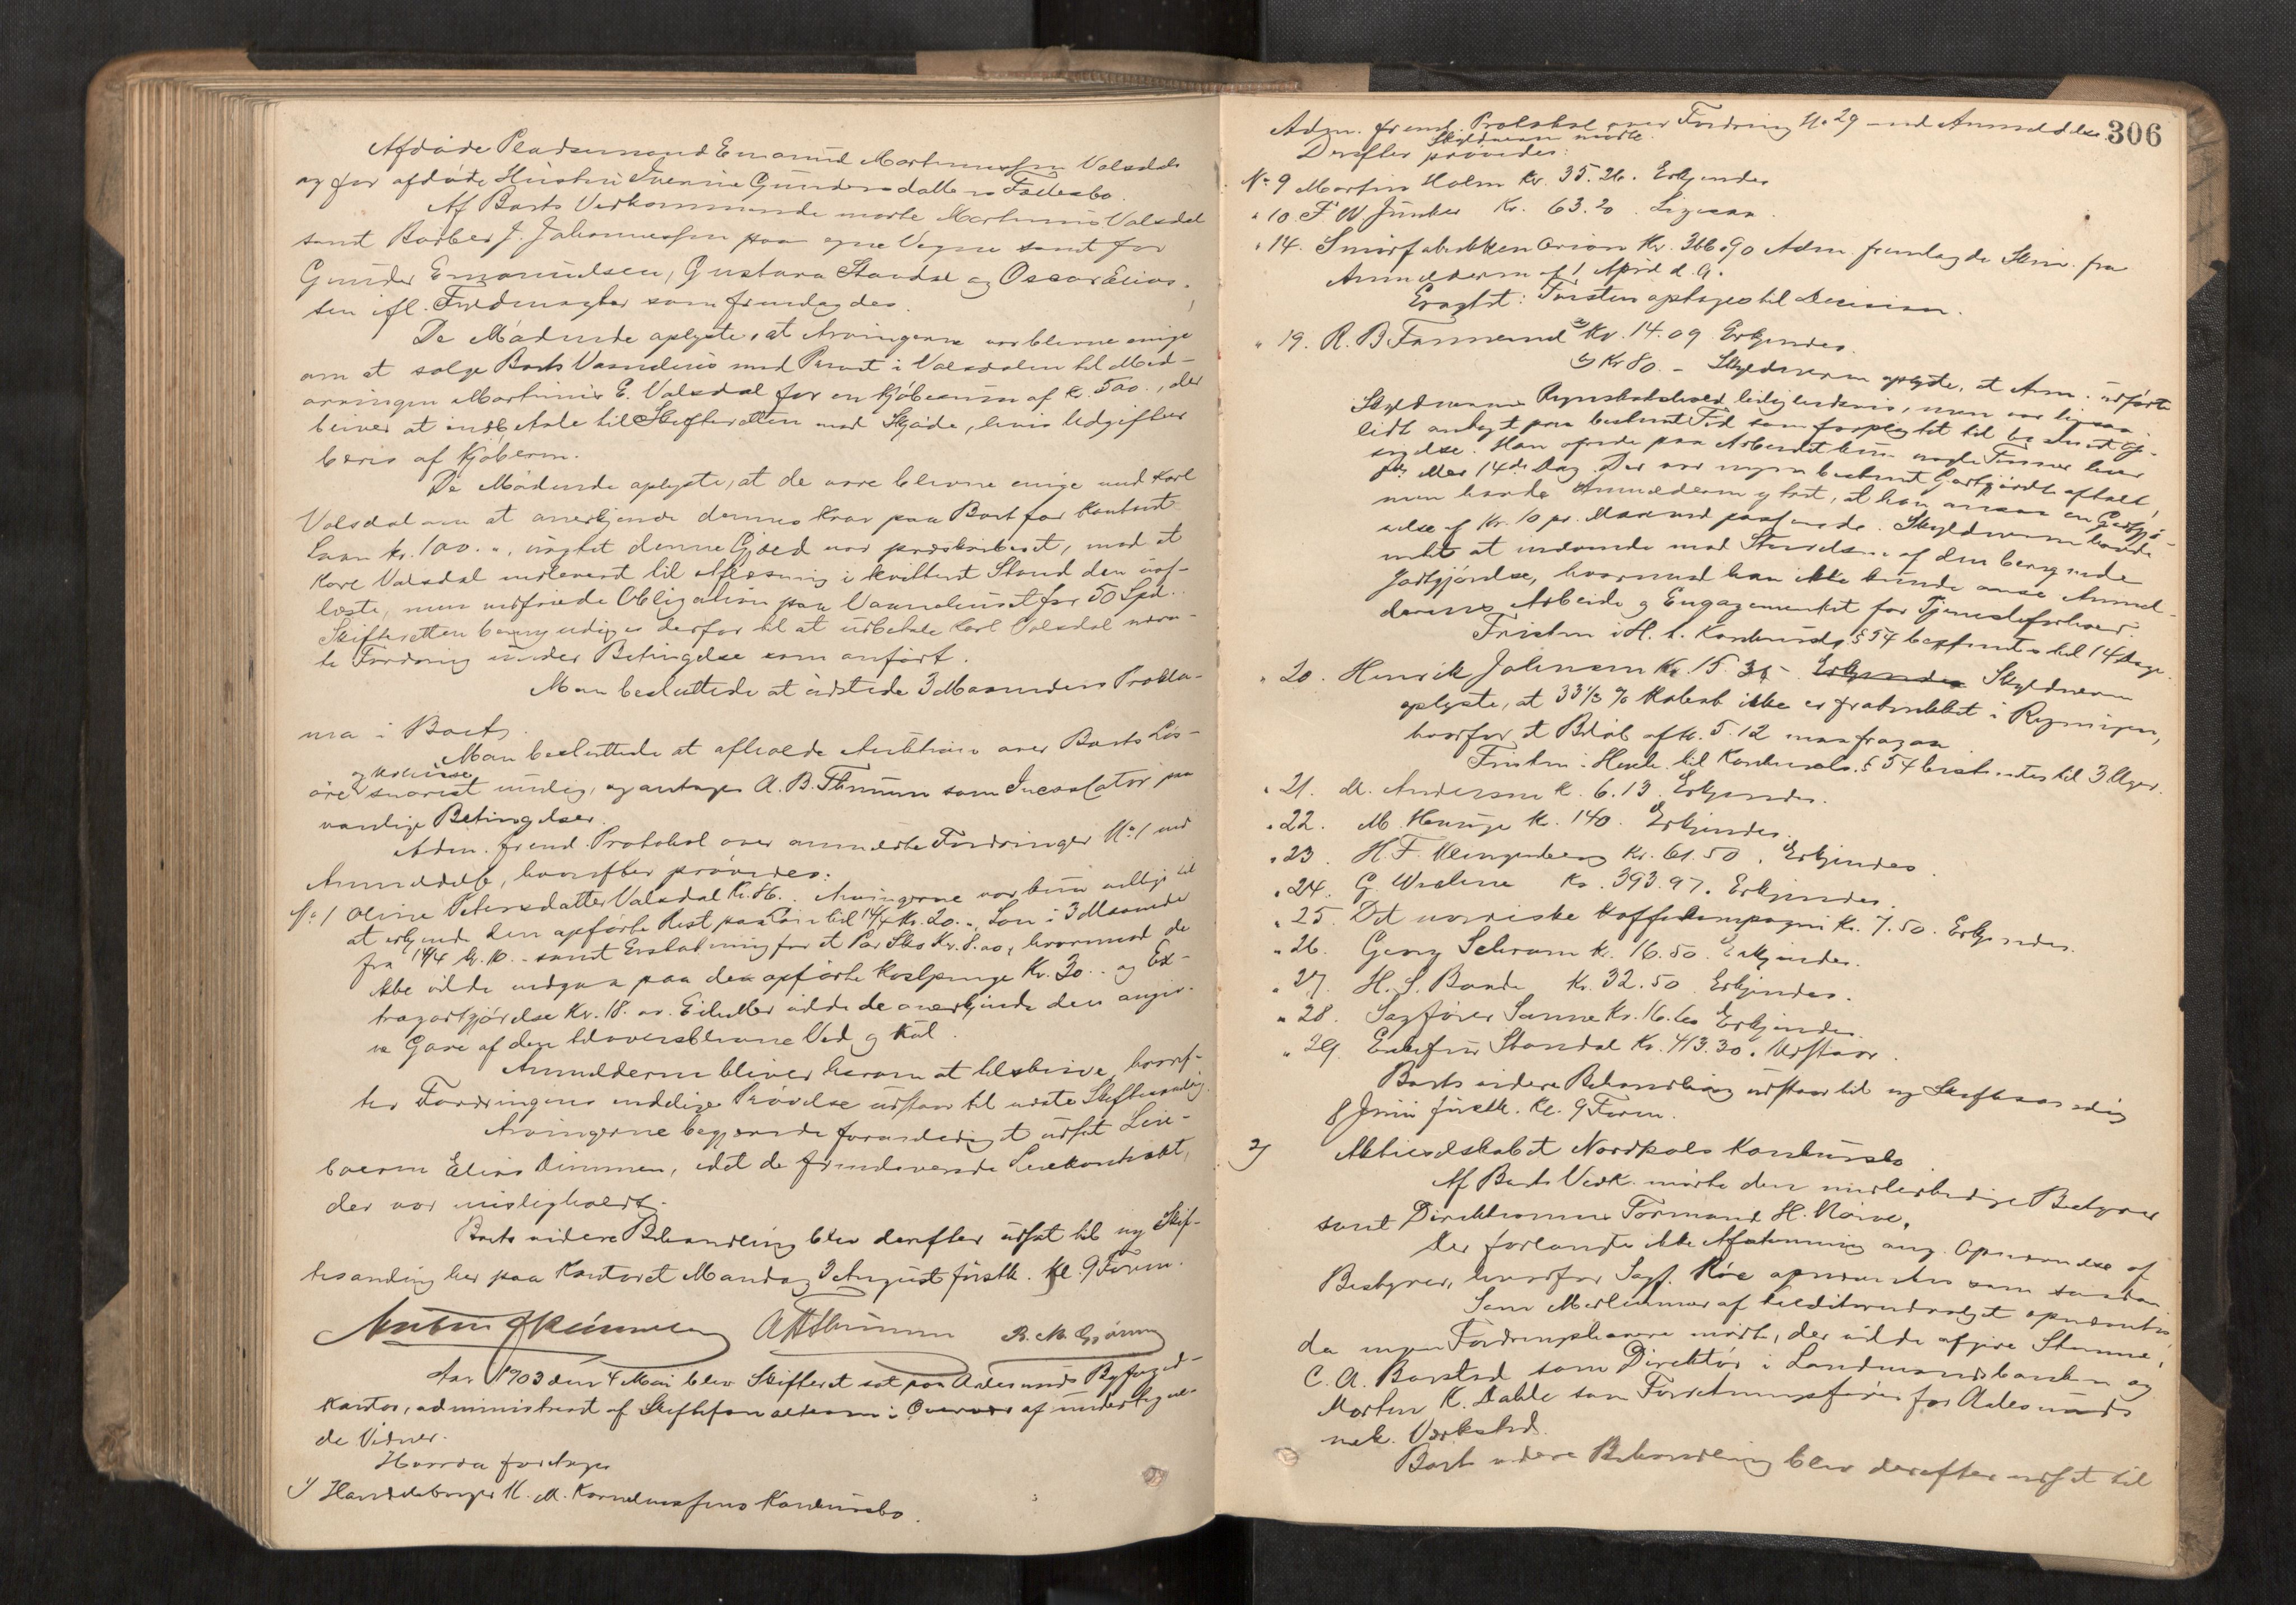 Afdøde Pladsemand Emanuel Martinussen Valsdal
og før afdøde Hustru Gundersdatters Fællesbo.
Af Boets Vedkommende mødte Martinus Valsdal
samt Barber J. Johannessen paa egne Vegne samt for
Gunder Emanuelsen, Gustava Standal og Oscar Elias-
sen ifl. Fuldmagter som fremlagdes.
De Mødende oplyste, at Arvingerne var blevne enige
om at sælge Boets Vaanehus med Tomt i Valsdalen til Med-
arvingen Martinus E. Valsdal for en Kjøbesum af K. 500.-, der
bliver at indbetale til Skifteretten mod Skjøde, hvis Udgifter
bæres af Kjøberen.
De Mødende oplyste, at de vare blevne enige med Karl
Valsdal om at anerkjende dennes Krav paa Boet for Kontant
Laan Kr. 100.-, uagtet denne Gjæld var præskriberet, mod at
Karl Valsdal udleveret til Aflæsning i kvitteret Stand den uaf-
læste, men Obligation paa Vaanehuset for 50 Spd.
Skifteretten bemyndiges derfor til at udbetale Karl Valsdal nævn-
te Fordring under Betingelse som anført.
Man besluttede at udstede 3 Maaneders Prokla-
ma i Boet.
Man besluttede at afholde Auktion over Boets Løs-
øre og Kreaturer snarest mulig, og antages A. B. Thunem som Incassator paa
vanlige Betingelser.
Adm. freml. Protokol over anmeldte Fordringer No 1 med
Anmeldelse, hvorefter prøvedes:
No 1 Oline Petersdatter Valsdal Kr. 86.- Arvingerne var kun villige til
at erkjende den opførte Rest paa Løn til 14/4 Kr. 20.-, Løn i 3 Maaneder
fra 14/4 Kr. 10.- samt Erstatning for et Par Sko Kr. 8.00, hvorimod de
ikke vilde indgaa paa den opførte Kostpenge Kr. 30.- og Ex-
tragodtgjørelse Kr. 18.00. Eiheller vilde de anerkjende den angiv-
ne Gave af den tiloversblevne Ved og Kul.
Anmelderen bliver herom at tilskrive, hvoref-
ter Fordringens endelige Prøvelse udstaar til næste Skiftesamling.
Arvingerne begjærede foranlediget udsat Leie-
boeren Elias Dimmen, idet de fremleverede Leiekontrakt,
der var misligholdt.
Boets videre Behandling blev derefter udsat til ny Skif-
tesamling her paa Kontoret Mandag 3 August førstk. Kl. 9 Form.
A B Thunem R. M. Gjørung
Aar 1903 den 4 Mai blev Skifteret sat paa Aalesunds Byfoged-
kontor, administreret af Skifteforvalteren i Overvær af undertegne-
de Vidner.
Hvorda foretoges
1) Handelsborger K. M. Kornelinssens Konkursbo.
306
Adm. freml. Protokol over Fordring No 29 med Anmeldelse.
Skyldneren mødte.
Derefter prøvedes:
No 9 Martin Holm Kr. 35.26. Erkjendes
" 10 F. W. Junker Kr. 63.20. Ligesaa.
" 14. Smørfabrikken Orion Kr. 366.90 Adm. fremlagde Skriv. fra
Anmelderen af 1 April d. A.
Eragtet: Tvisten optages til Decision.
" 19. R. B. Farmand a) Kr. 14.09 Erkjendes.
b) Kr 80.- Skyldneren oplyste, at Anm. udførte
Skyldnerens Regnskabshold leilighedsvis, men var ligesaa
lidt antaget paa bestemt Tid som forpligtet til bestemt Gj-
øgelse. Han øvede paa Arbeidet kun nogle Timer hver
8de eller 14de Dag. Der var ingen bestemt Godtgjørelse aftalt,
men havde Anmelderen ytret, at han ansaa en Godtgjø-
relse af Kr. 10 pr. Maaned passende. Skyldneren havde
intet at indvende mod Størrelsen af den beregnede
Godtgjørelse, hvorimod han ikke kunde anse Anmel-
derens Arbeide og Engagementet for Tjenesteforhold.
Fristen i H. t. Konkurslov. § 54 bestemtes til 14 Dage.
" 20. Henrik Johnsen Kr. 15.35. Erkjendes Skyldneren
oplyste, at 33 1/3 % Rabat ikke er fratrukket i Regningen,
hvorfor et Beløb af Kr. 5.12 maa fragaa
Fristen i Henh. til Konkurslov. § 54 bestemtes til 3 Uger.
" 21. M. Andersen K. 6.13. Erkjendes.
" 22. M. Hauge K. 140. Erkjendes.
" 23. H. F. Klingenberg Kr. 61.50. Erkjendes.
" 24. G. Kr. 393.97. Erkjendes.
" 25. Det nordiske Kaffekompagni Kr. 7.50. Erkjendes.
" 26. Georg Schram K. 16.50. Erkjendes.
" 27. H. S. Bande Kr. 32.50. Erkjendes.
" 28. Sagfører Sanne Kr. 16.60 Erkjendes.
" 29. Enkefru Standal Kr. 413.30. Udstaar.
Boets videre Behandling udstaar til ny Skiftesamling
8 Juni førstk. Kl. 9 Form.
2) Aktieselskabet Nordpols Konkursbo
Af Boets Vedk. mødte den midlertidige Bestyrer
samt Direktionens Formand H. Næve.
Der forelaa ikke Afstemning ang. Opnævnelse af
Bestyrer, hvorfor Sagf. Røe opnævntes som saadan.
Som Medlemmer af Kreditorudvalget opnævntes,
da ingen Fordringshavere mødte, der vilde afgive Stemme,
C. A. Barstad som Direktør i Landmandsbanken og
Morten K. Dahle som Forretningsfører for Aalesunds
mek. Værksted.
Boets videre Behandling blev derefter udsat til